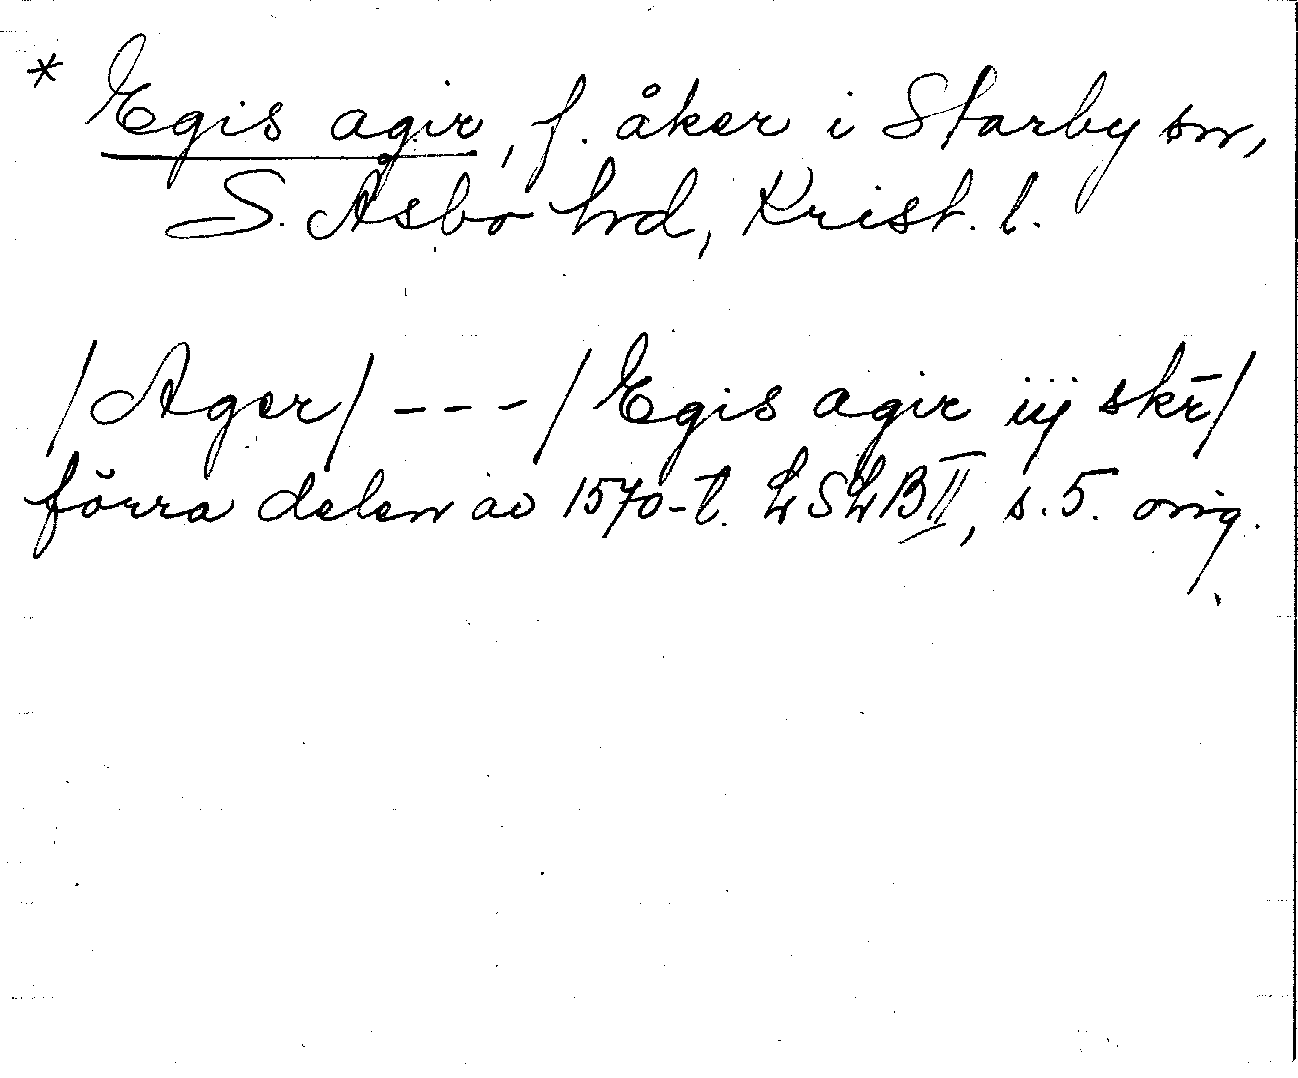 * Egis agir, f. åker i Starby sn,
S. Åsbo hrd, Krist. l.
/Ager/ --- /Egis agir iij skr̄/
förra delen av 1570-t. LSLB II, s. 5. orig.